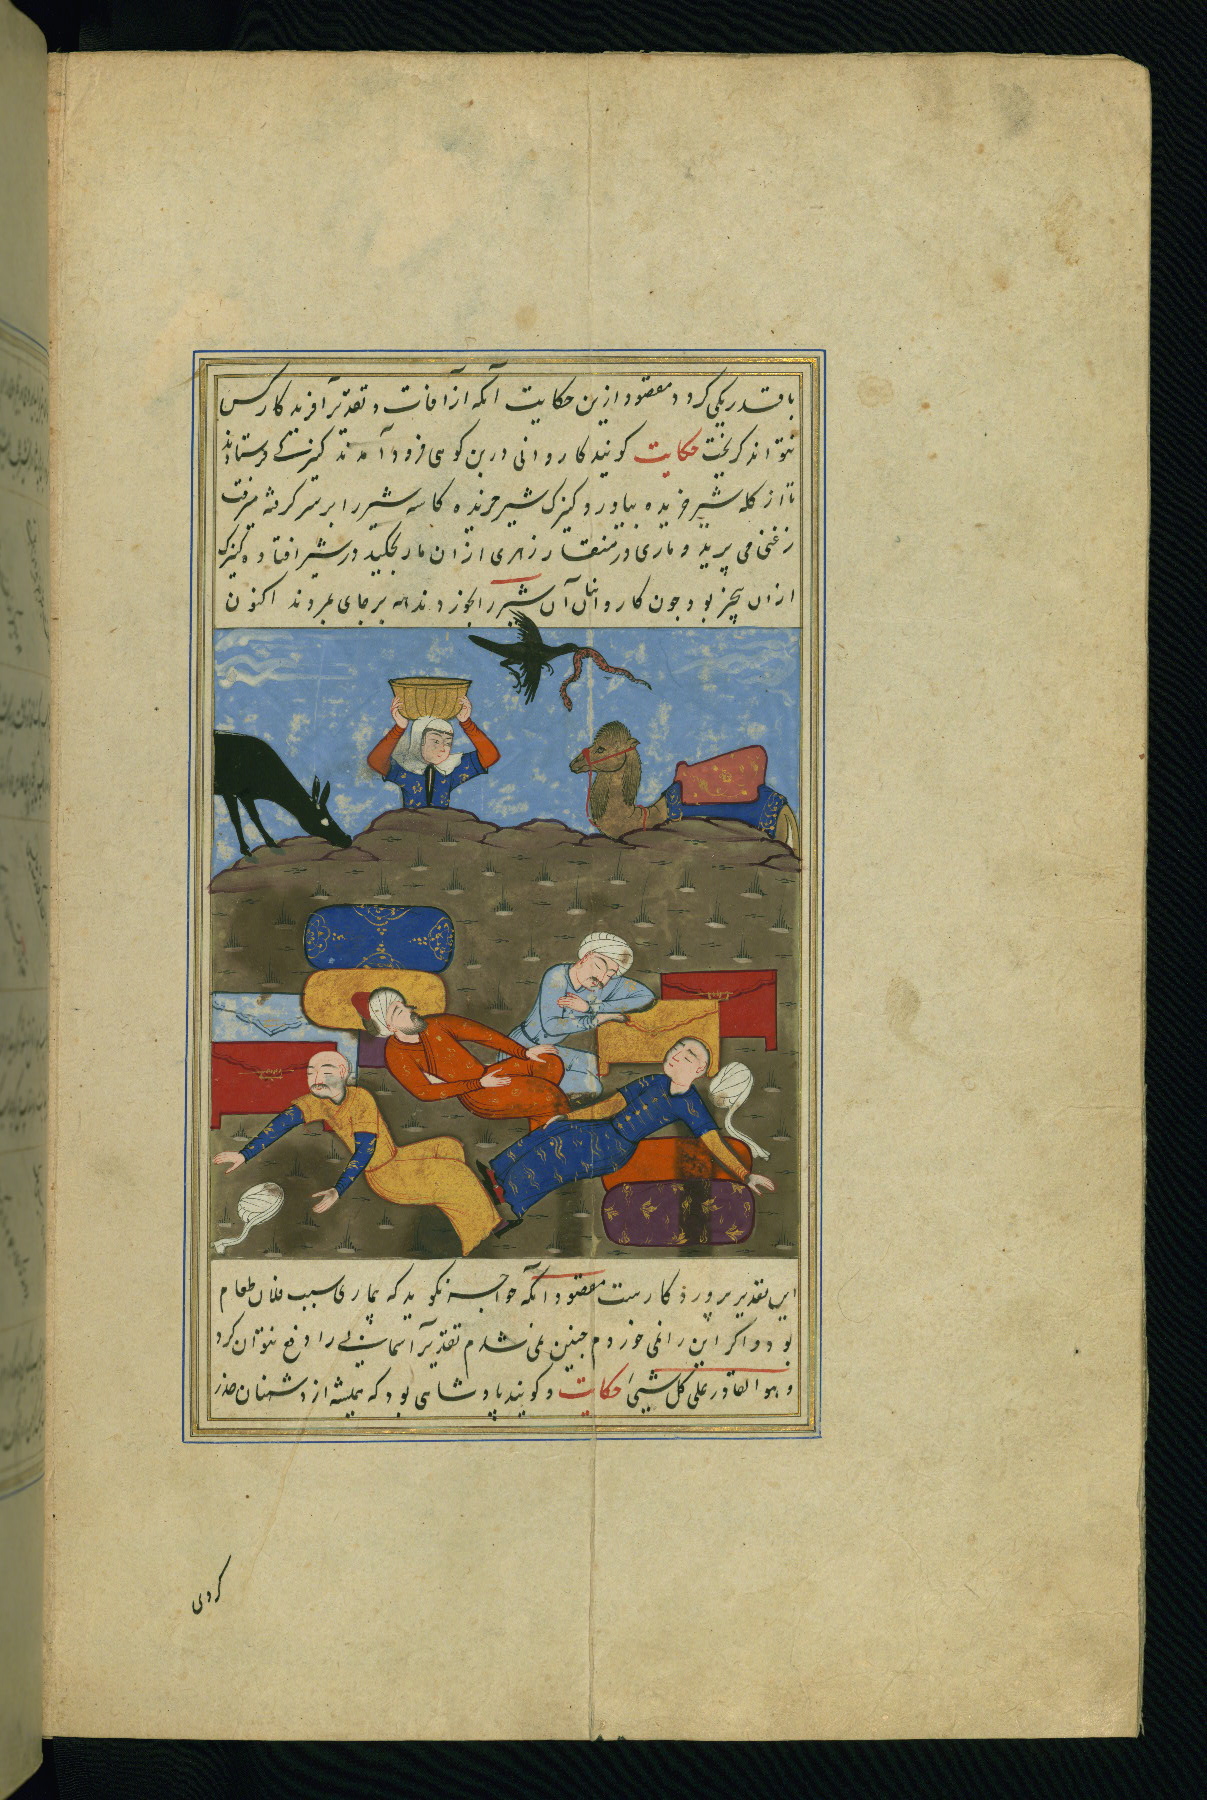 با قدر یکی کرد و مقصود ازین حکایت آنکه از آفات و تقدیر آفریدکار کس
نتواند کریخت حکایت کویند کاروانی در بن کوهی فرود آمدند کنیزکی فرستادند
تا از کله شیر خریده بیاورد کنیزک شیر خریده کاسه شیر را بر سر کرفته میرفت
زغنی می پرید و ماری در منقار زهری از ان مار بچکید در شیر افتاد و کنیزک
ازان بیخبر بود جون کاروانیان آن شیر را بخوردند همه بر جای بمردند اکنون
این تقدیر پرورد کارست مقصود آنکه خواجه نکوید که بیماری سبب فلان طعام
بود و اکر این را نمی خوردم جنین نمی شدم تقدیر آسمانی را دفع نتوان کرد
و هو القادر علی کل شیئ حکایت و کویند پادشاهی بود که همیشه از دشمنان حذر
کردی